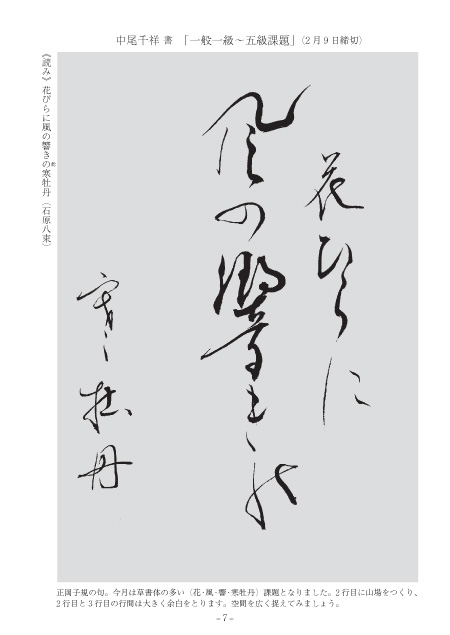 中尾千祥 書 「一般一級～五級課題」(2月9日締切)
《読み》花びらに風の響きの寒牡丹（石原八束）
能
花ひらに
風の響き能
寒牡丹
正岡子規の句。今月は草書体の多い（花・風・響・寒牡丹）課題となりました。2行目に山場をつくり、
2行目と3行目の行間は大きく余白をとります。空間を広く捉えてみましょう。
－7－